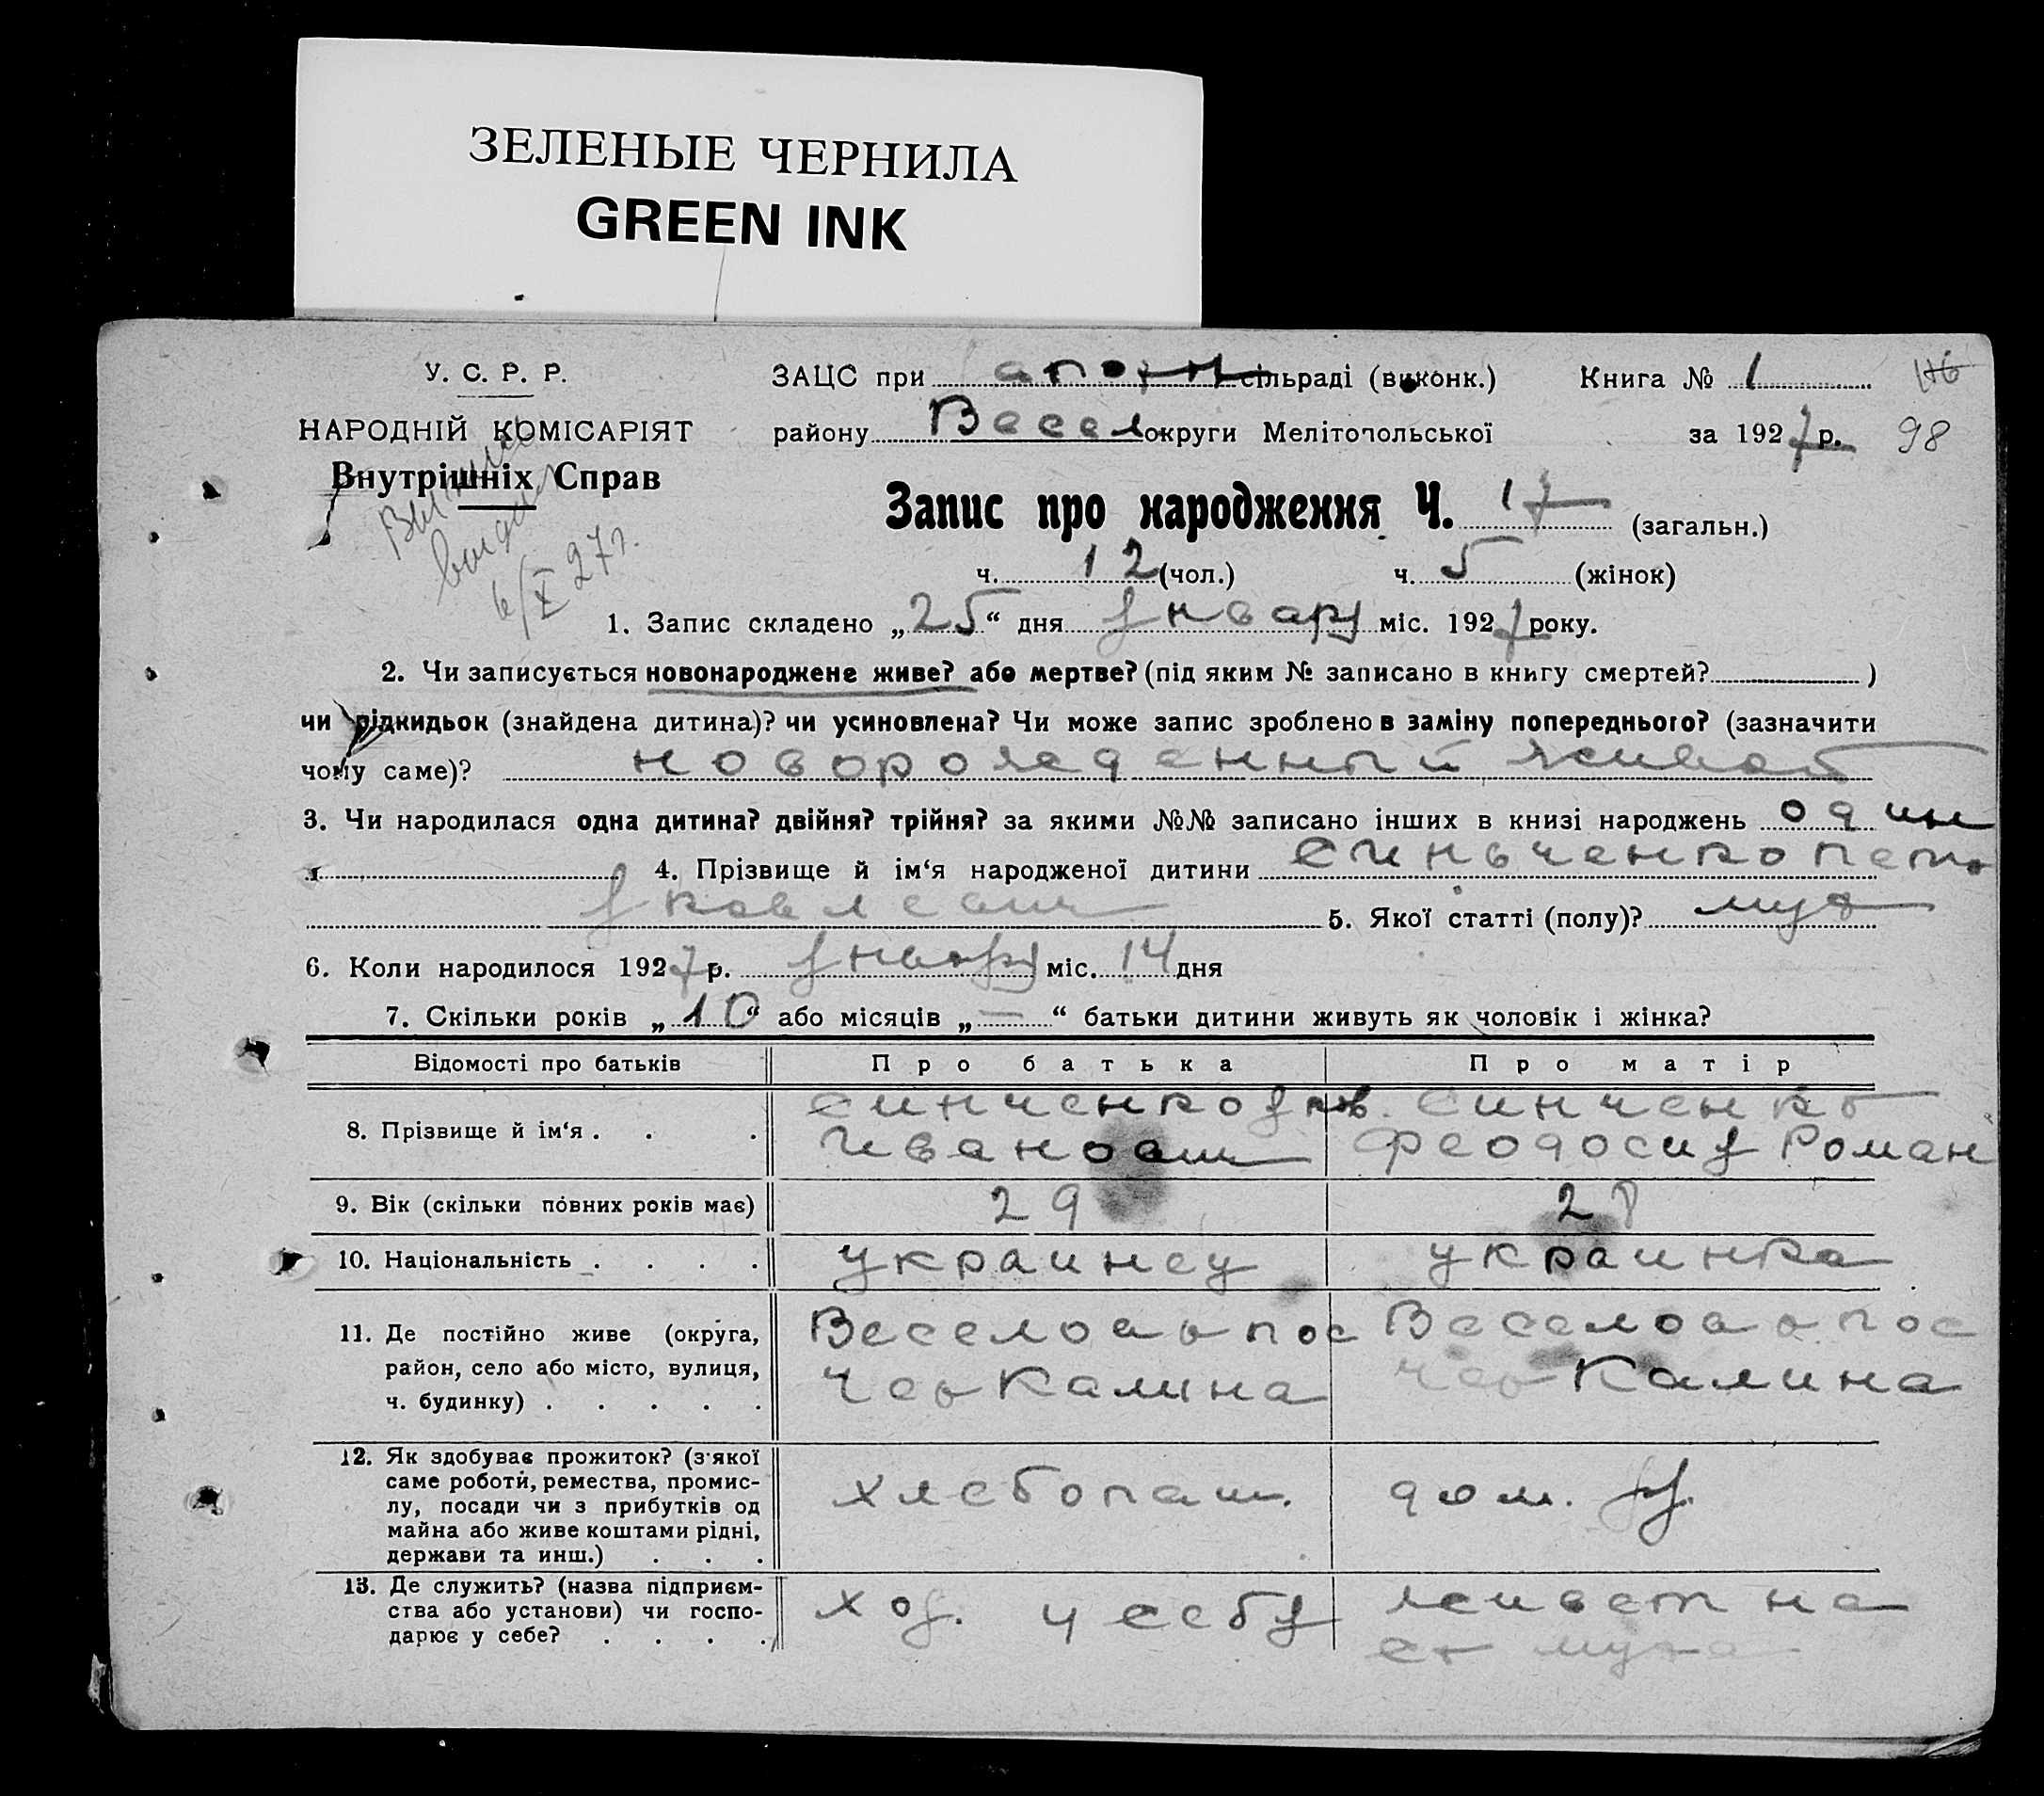 ЗЕЛЕНЫЕ ЧЕРНИЛА
GREEN INK
У. С. Р. Р.
НАРОДНІЙ КОМІСАРІЯТ
Внутрішніх Справ
6/X 27 г.
ЗАЦС при сільраді (виконк.) Книга № 1
району Весел округи Мелітопольської за 1927 р. 98
Запис про народження Ч. 17 (загальн.)
ч. 12 (чол.) ч. 5 (жінок)
1. Запис складено „25“ дня январ міс. 1927 року.
2. Чи записується новонароджене живе? або мертве? (під яким № записано в книгу смертей? )
чи підкидьок (знайдена дитина)? чи усиновлена? Чи може запис зроблено в заміну попереднього? (зазначити
чому саме)? новорожденный живой
3. Чи народилася одна дитина? двійня? трійня? за якими №№ записано інших в книзі народжень один
4. Прізвище й ім‘я народженої дитини Синьченко Петр
Яковлевич 5. Якої статті (полу)? муж
6. Коли народилося 1927 р. январ міс. 14 дня
7. Скільки років „10“ або місяців „—“ батьки дитини живуть як чоловік і жінка?
Відомості про батьків Про батька Про матір
8. Прізвище й ім‘я . . . Синченко Яков. Синченко
Иванович Феодосия Роман
9. Вік (скільки повних років має) 29 28
10. Національність . . . . украинец украинка
11. Де постійно живе (округа, район, село або місто, вулиця, ч. будинку) . . . . . Веселого пос Веселого пос
Калина Калина
12. Як здобуває прожиток? (з'якої саме роботи, ремества, промислу, посади чи з прибутків од майна або живе коштами рідні, держави та инш.) . . . хлебопаш. дом. хоз.
13. Де служить? (назва підприємства або установи) чи господарює у себе? . . . . хоз. у себя живет на
ср мужа